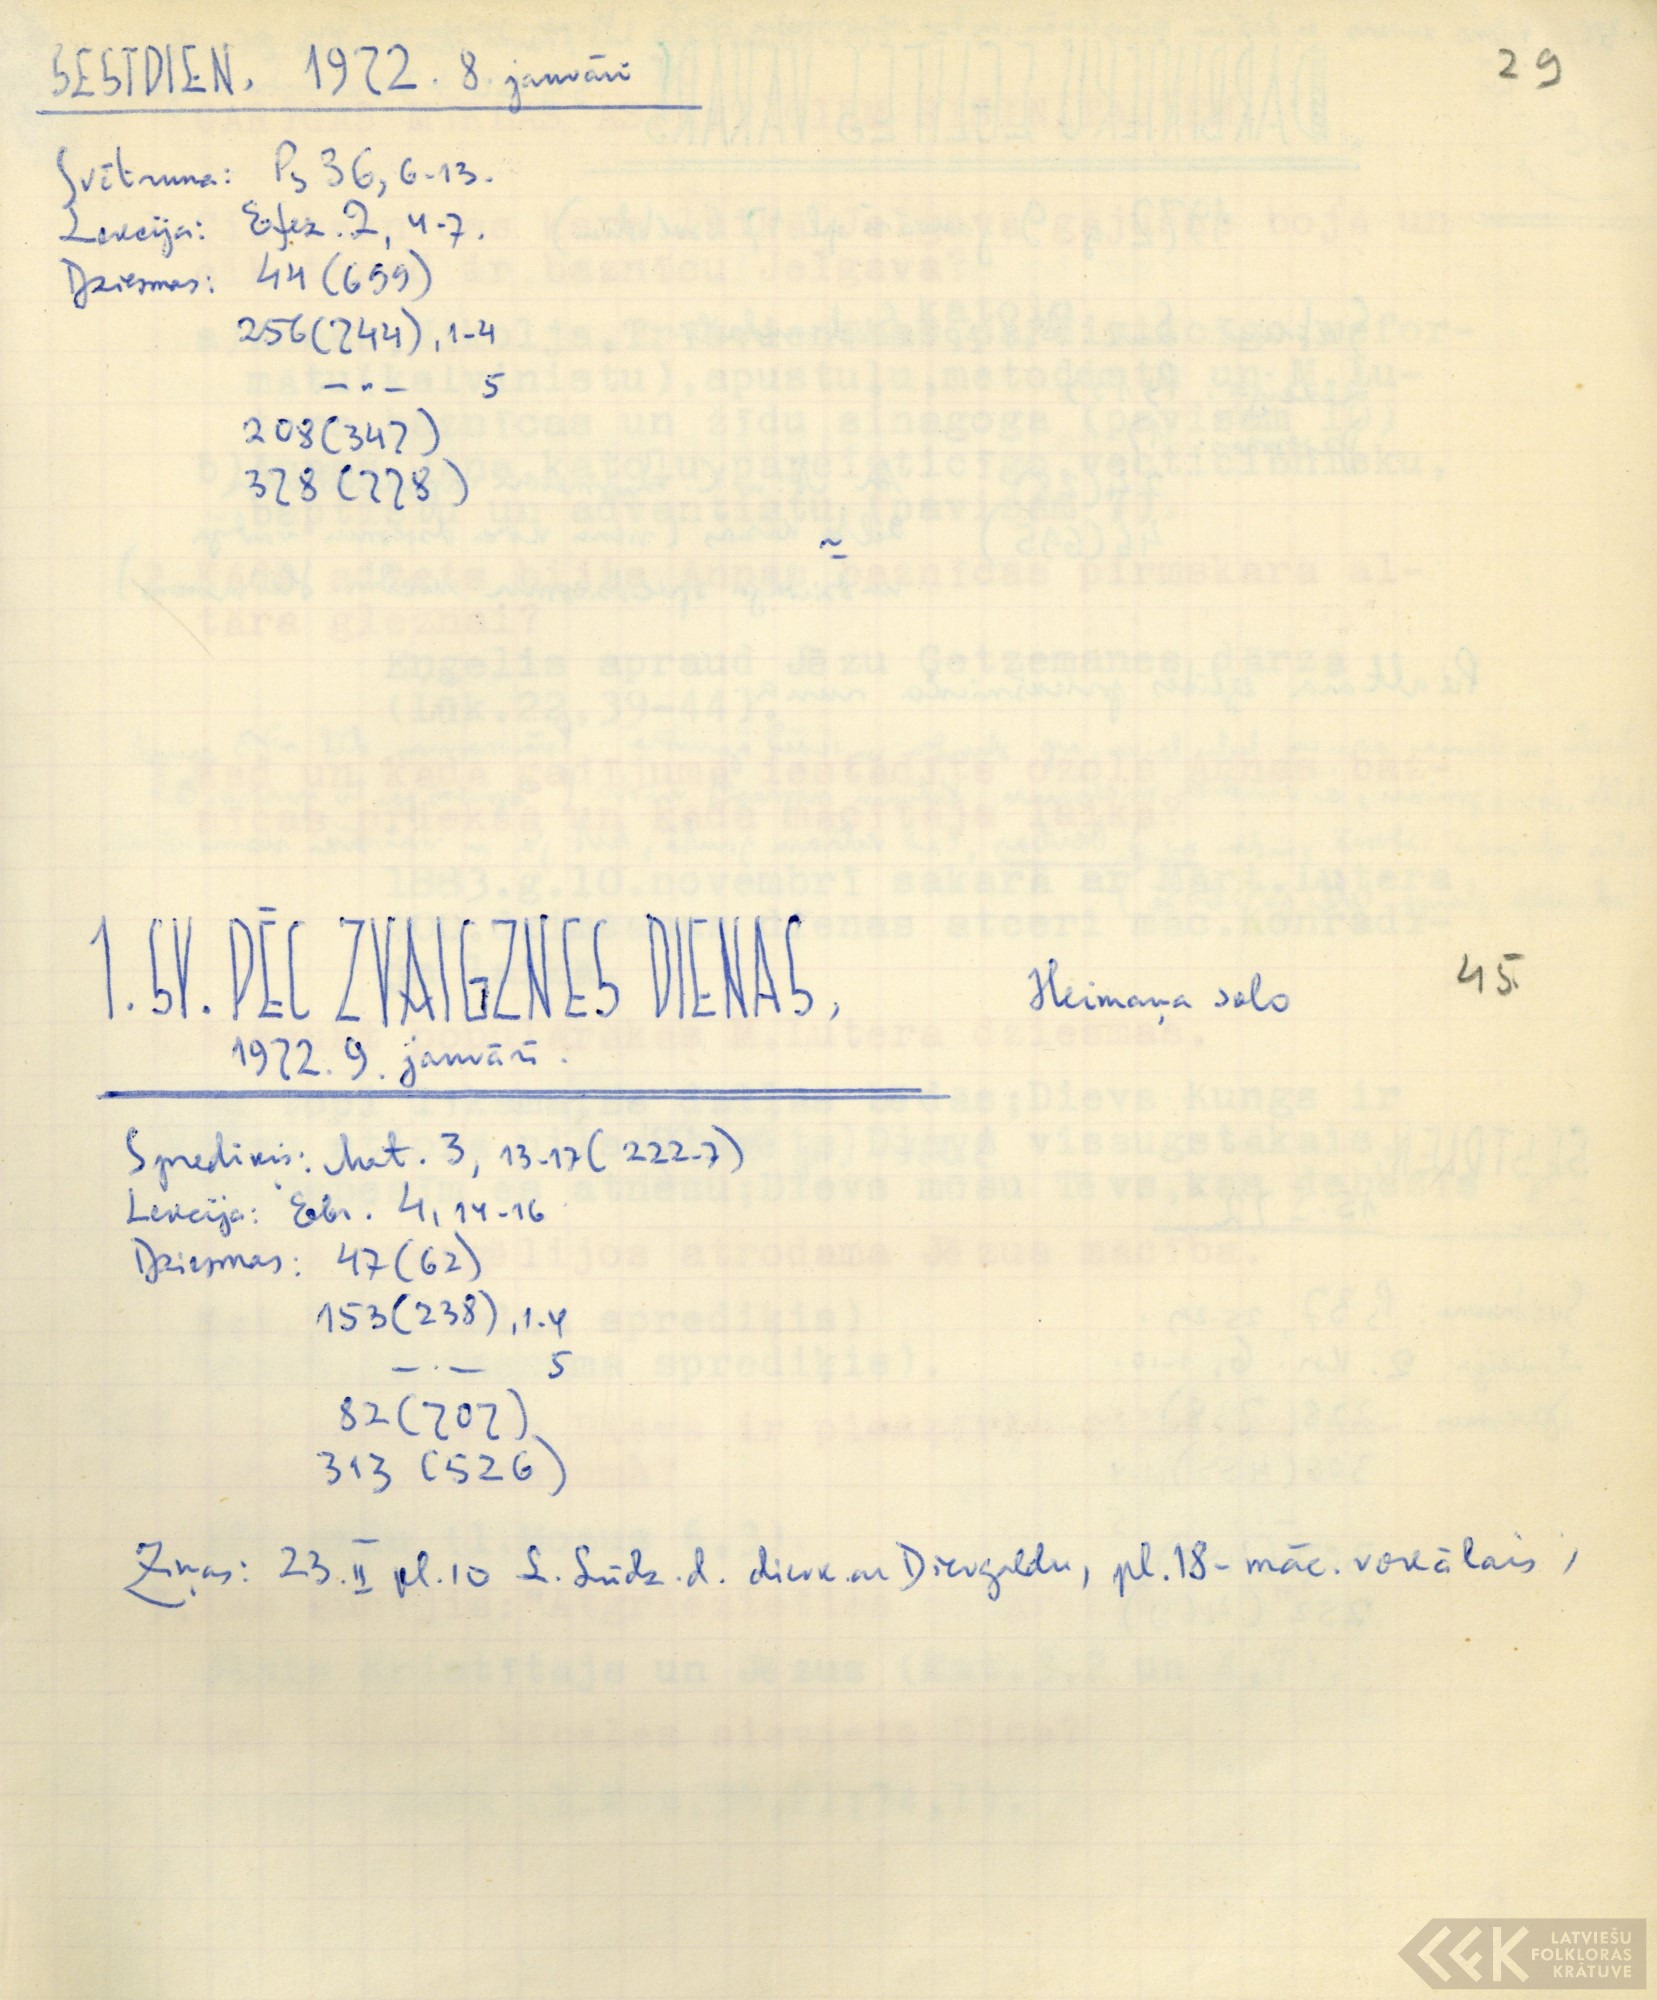 SESTDIEN, 1972. 8. janvārī
29
Svētruna: Ps 36, 6-13.
Lekcija: Efez. 2, 4-7.
Dziesmas: 44 (699)
256 (744), 1-4
—„— 5
208 (347)
378 (778)
~
1. SV. PĒC ZVAIGZNES DIENAS,
Heimaņa solo
45
1972. 9. janvārī.
Sprediķis: Mat. 3, 13-17 (222-7)
Lekcija: Ebr. 4, 14-16
Dziesmas: 47 (62)
153 (238), 1-4
—„— 5
82 (707)
313 (526)
Ziņas: 23. II pl. 10 L. Lūdz. d. dievk. ar Dievgaldu, pl. 18 - māc. vokālais,
LATVIEŠU
FOLKLORAS
KRĀTUVE